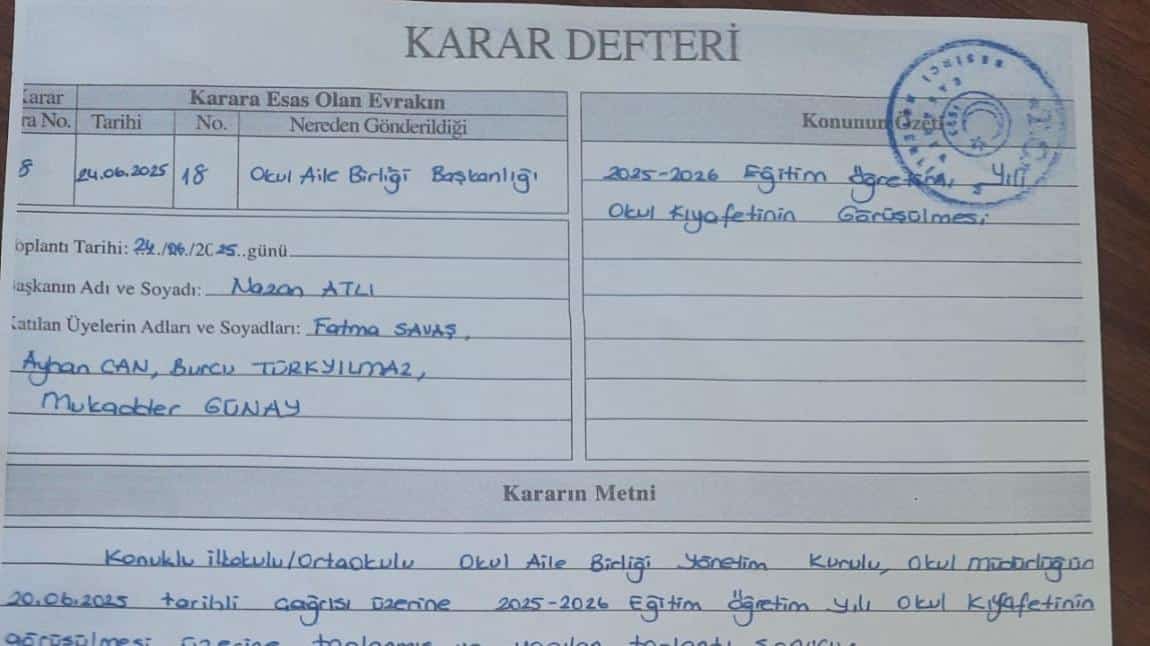 KARAR DEFTERİ
Karar Karara Esas Olan Evrakın
ra No. Tarihi No. Nereden Gönderildiği
Konunun Özeti
8 24.06.2025 18 Okul Aile Birliği Başkanlığı
2025-2026 Eğitim Öğretim Yılı
Okul Kıyafetinin Görüşülmesi
oplantı Tarihi: 24./06./2025..günü
aşkanın Adı ve Soyadı: Nazan ATLI
Katılan Üyelerin Adları ve Soyadları: Fatma SAVAŞ,
Ayhan CAN, Burcu TÜRKYILMAZ,
Mukadder GÜNAY
Kararın Metni
Konuklu İlkokulu/Ortaokulu Okul Aile Birliği Yönetim Kurulu, Okul Müdürlüğün
20.06.2025 tarihli çağrısı üzerine 2025-2026 Eğitim Öğretim yılı Okul Kıyafetinin
görüşülmesi üzerine toplanmış ve yapılan toplantı